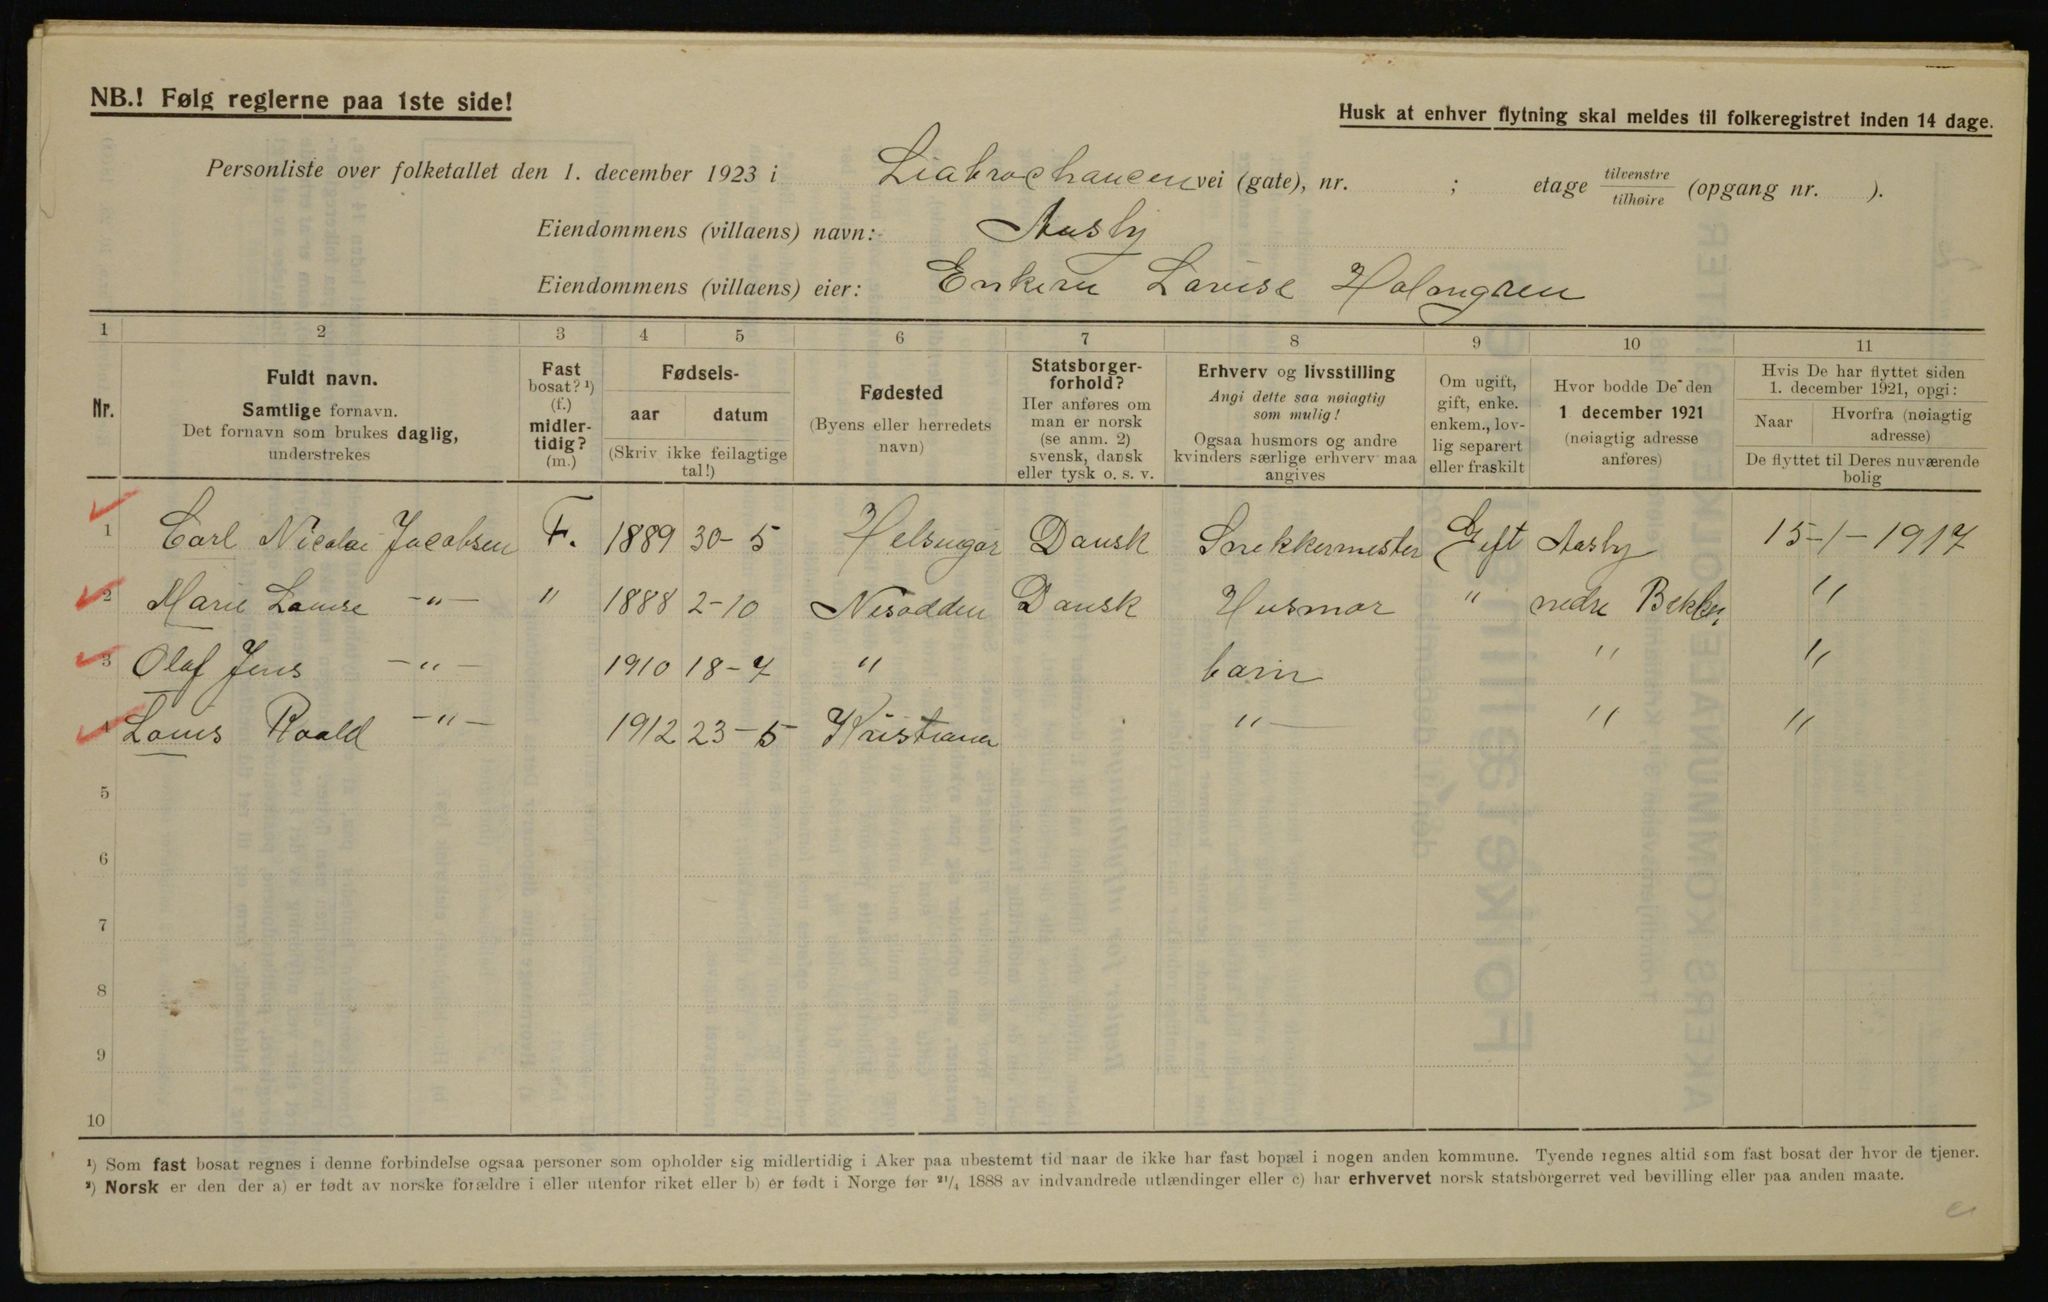 NB.! Følg reglerne paa 1ste side!
Husk at enhver flytning skal meldes til folkeregistret inden 14 dage.
Personliste over folketallet den 1. december 1923 i Liabrochauceen vei (gate), nr. ; etage tilvenstre/tilhøire (opgang nr. ).
Eiendommens (villaens) navn: Aasby
Eiendommens (villaens) eier: Enkeru Lovise Holmgren
1 2 3 4 5 6 7 8 9 10 11
Nr.
Fuldt navn.
Samtlige fornavn.
Det fornavn som brukes daglig,
understrekes
Fast
bosat? ¹)
(f.)
midler-
tidig?
(m.)
Fødsels-
aar datum
(Skriv ikke feilagtige
tal!)
Fødested
(Byens eller herredets
navn)
Statsborger-
forhold?
Her anføres om
man er norsk
(se anm. 2)
svensk, dansk
eller tysk o. s. v.
Erhverv og livsstilling
Angi dette saa nøiagtig
som mulig!
Ogsaa husmors og andre
kvinders særlige erhverv maa
angives
Om ugift,
gift, enke.
enkem., lov-
lig separert
eller fraskilt
Hvor bodde De den
1 december 1921
(nøiagtig adresse
anføres)
Hvis De har flyttet siden
1. december 1921, opgi:
Naar Hvorfra (nøiagtig
adresse)
De flyttet til Deres nuværende
bolig
1 Carl Nicolai Jacobsen F. 1889 30-5 Helsingør Dansk Snekkermester Gift Aasby 15-1-1917
2 Marie Louise -"- " 1888 2-10 Nesodden Dansk Husmor " nedre Bekke, "
3 Olaf Jens -"- 1910 18-7 " barn " "
4 Louis Roald -"- 1912 23-5 Kristiania "- " "
5
6
7
8
9
10
¹) Som fast bosat regnes i denne forbindelse ogsaa personer som opholder sig midlertidig i Aker paa ubestemt tid naar de ikke har fast bopæl i nogen anden kommune. Tyende regnes altid som fast bosat der hvor de tjener.
²) Norsk er den der a) er født av norske forældre i eller utenfor riket eller b) er født i Norge før ²¹/₄ 1888 av indvandrede utlændinger eller c) har erhvervet norsk statsborgerret ved bevilling eller paa anden maate.